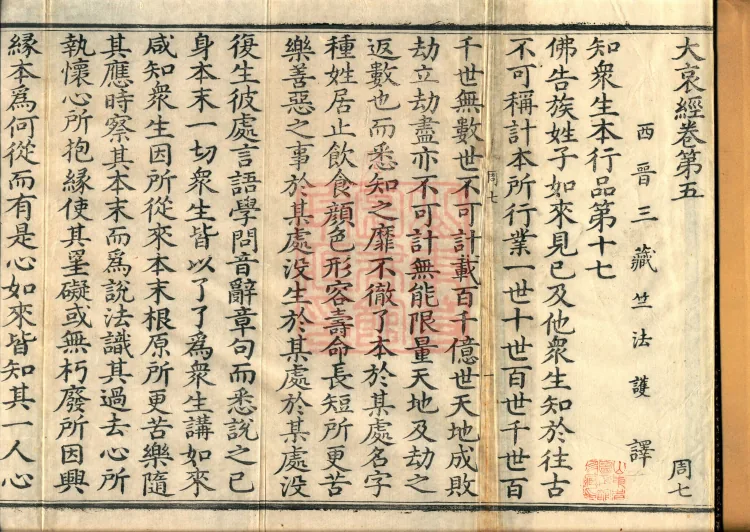 大哀經卷第五
周七
西晉三藏竺法護譯
知衆生本行品第十七
佛告族姓子如來見已及他衆生知於往古
不可稱計本所行業一世十世百世千世百
周七
千世無數世不可計載百千億世天地成敗
劫立劫盡亦不可計無能限量天地及劫之
返數也而悉知之靡不徹了本於某處名字
種姓居止飲食顔色形容壽命長短所更苦
樂善惡之事於某處没生於某處於某處没
復生彼處言語學問音辭章句而悉說之已
身本末一切衆生皆以了了爲衆生講如來
咸知衆生因所從來本末根原所更苦樂隨
其應時察其本末而爲說法識其過去心所
執懷心所抱緣使其罣礙或無朽廢所因興
緣本爲何從而有是心如來皆知其一人心